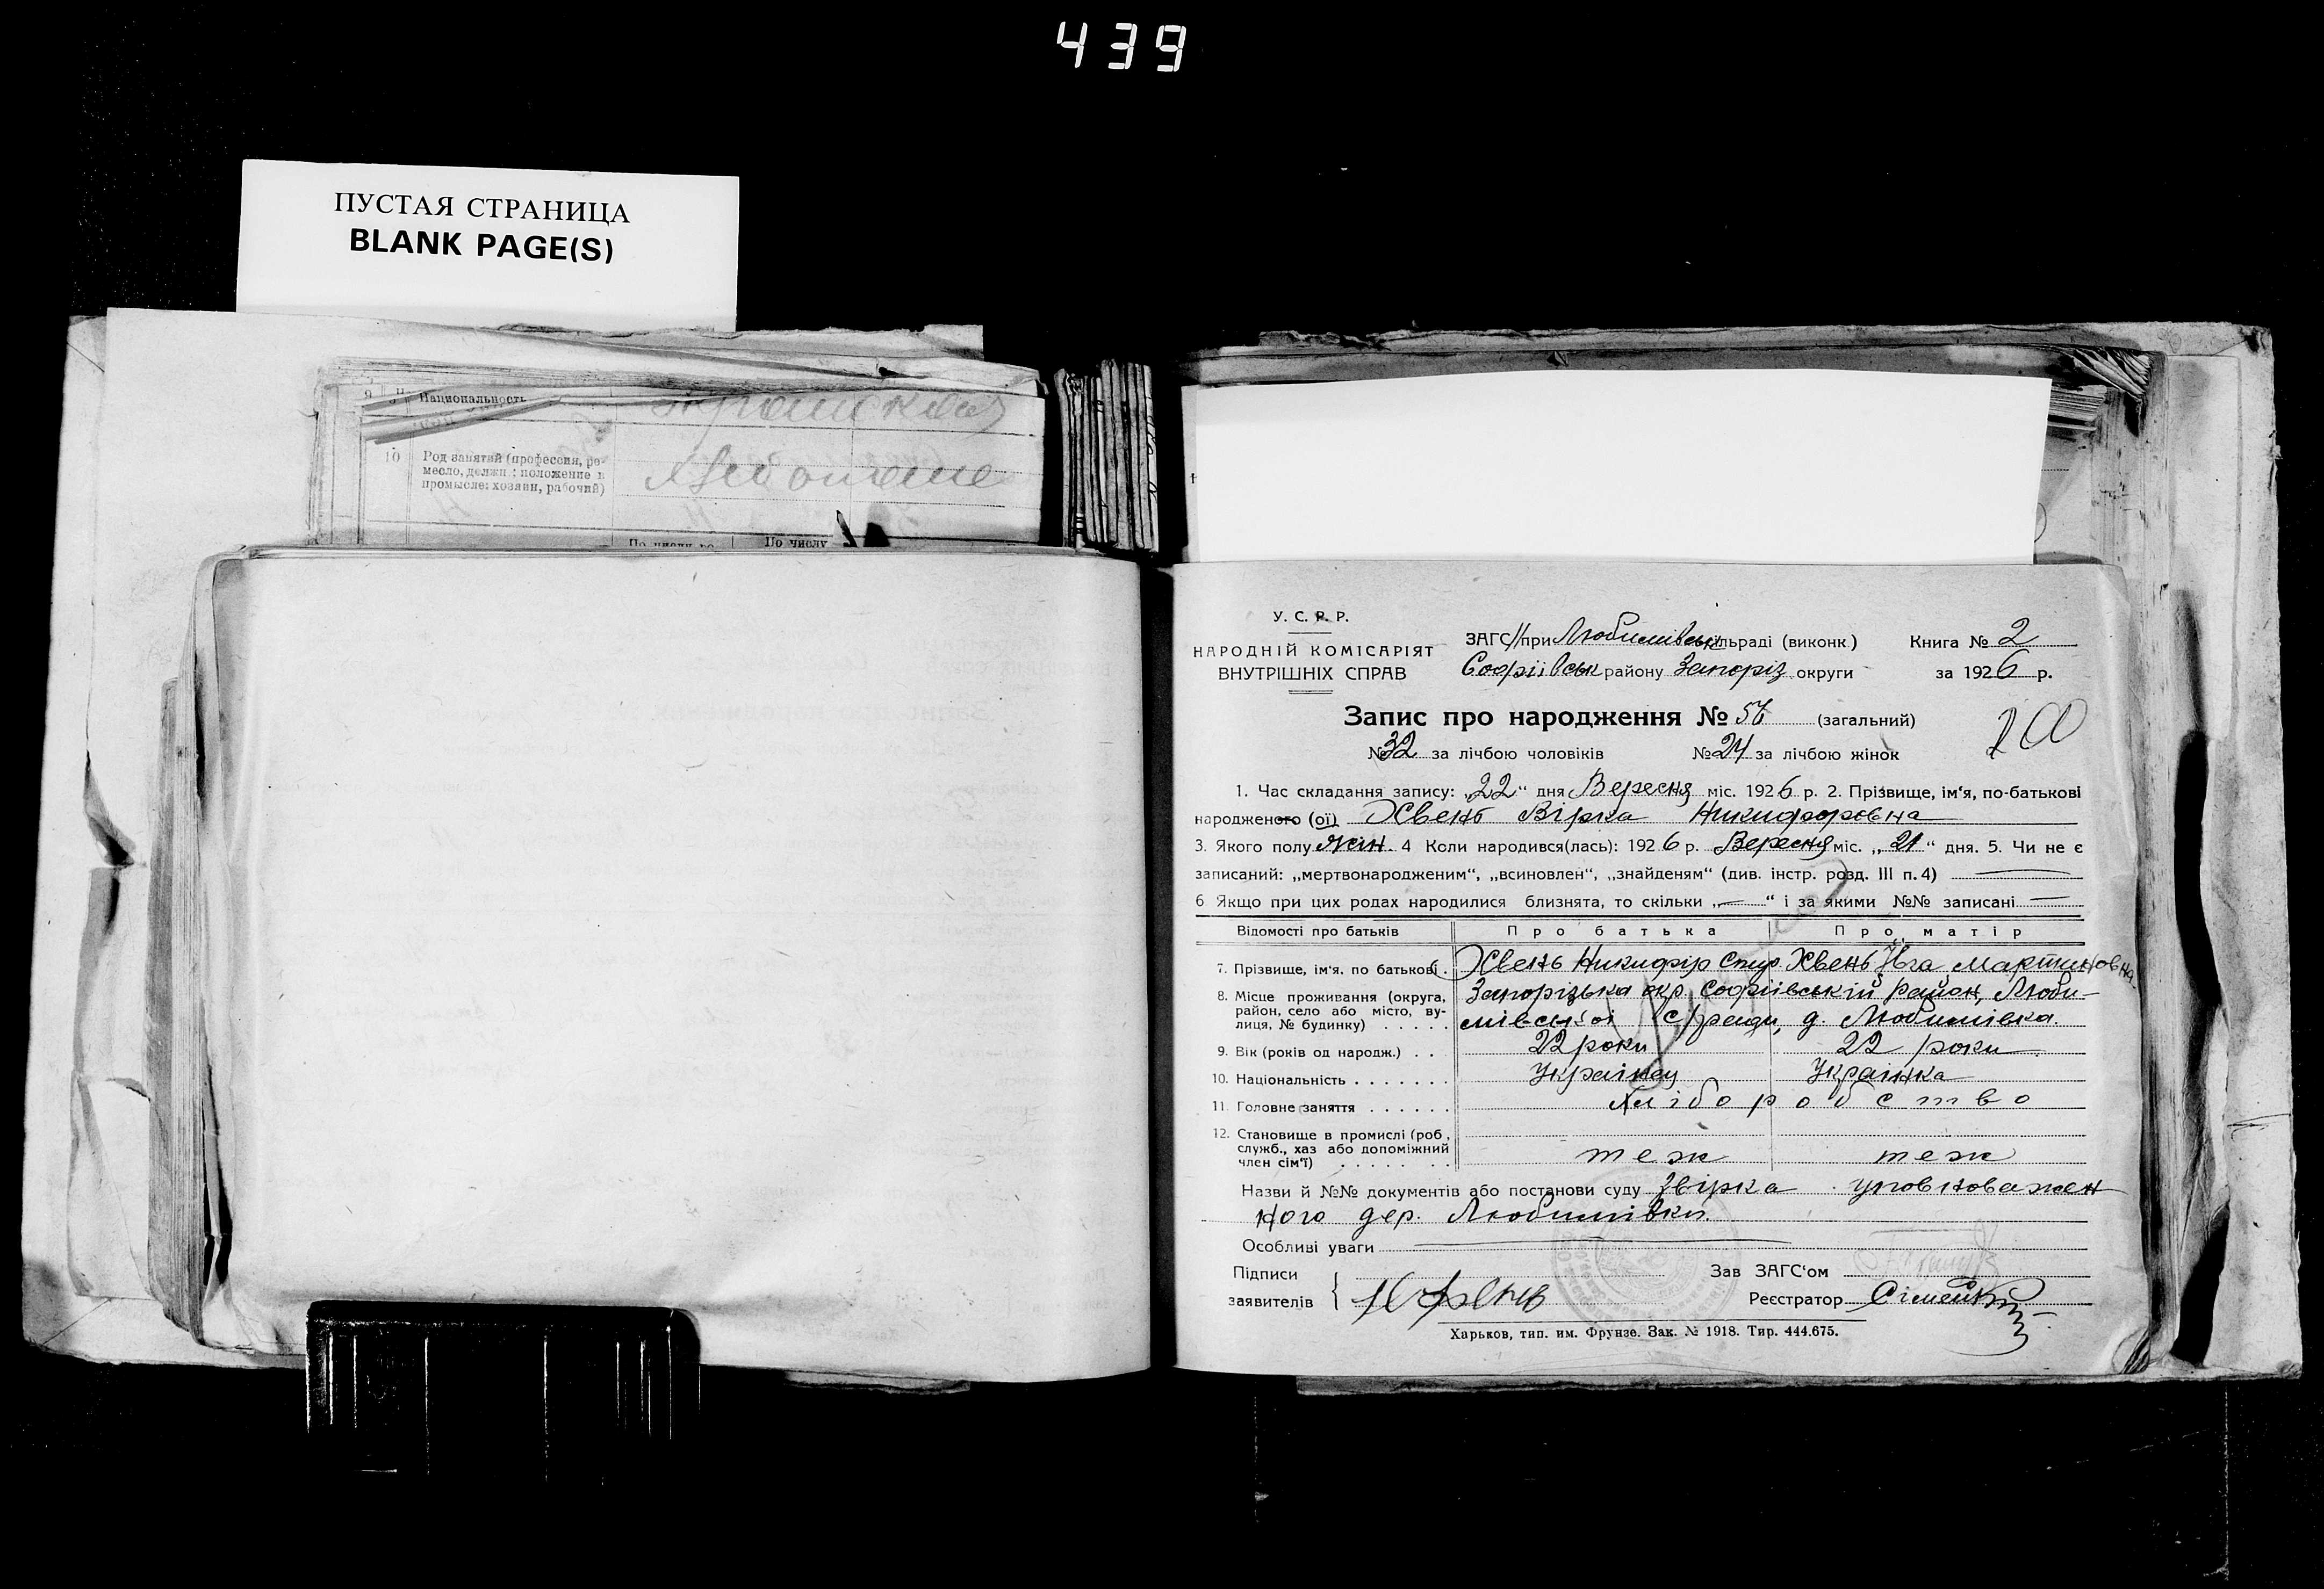 439
ПУСТАЯ СТРАНИЦА
BLANK PAGE(S)
9 Национальность
10 Род занятий (профессия, ре-
месло, должн.: положение в
промысле: хозяин, рабочий)
По числу
У. С. Р. Р.
НАРОДНІЙ КОМІСАРІЯТ
ВНУТРІШНІХ СПРАВ
ЗАГС при Любимівськ сільраді (виконк.)
Софіївськ району Запоріз. округи
Книга № 2
за 1926 р.
Запис про народження № 56 (загальний)
№ 32 за лічбою чоловіків № 24 за лічбою жінок
200
1. Час складання запису: „22“ дня Вересня міс. 1926 р. 2. Прізвище, ім'я, по-батькові
народженого (ої) Хвень Вірка Никифоровна
3. Якого полу жін. 4 Коли народився(лась): 1926 р. Вересня міс. „21“ дня. 5. Чи не є
записаний: „мертвонародженим“, „всиновлен“, „знайденям“ (див. інстр. розд. III п. 4)
6 Якщо при цих родах народилися близнята, то скільки „—“ і за якими №№ записані —
Відомості про батьків Про батька Про матір
7. Прізвище, ім'я, по батькові. Хвень Никифір Спир. Хвень Ївга Мартиновна
8. Місце проживання (округа,
район, село або місто, ву-
лиця, № будинку)
Запорізька окр. Софіївській район, Люби-
мівської с/ради, д. Любимівка.
9. Вік (років од народж.) . . 22 роки 22 роки
10. Національність . . . . . . . Українец Українка
11. Головне заняття . . . . . . Хліборобство
12. Становище в промислі (роб.,
служб., хаз або допоміжний
член сім'ї) . . . . . . . теж теж
Назви й №№ документів або постанови суду Звірка уповноважен
ного дер. Любимівки.
Особливі уваги
Підписи
заявителів
Зав ЗАГС'ом
Реєстратор
Харьков, тип. им. Фрунзе. Зак. № 1918. Тир. 444.675.